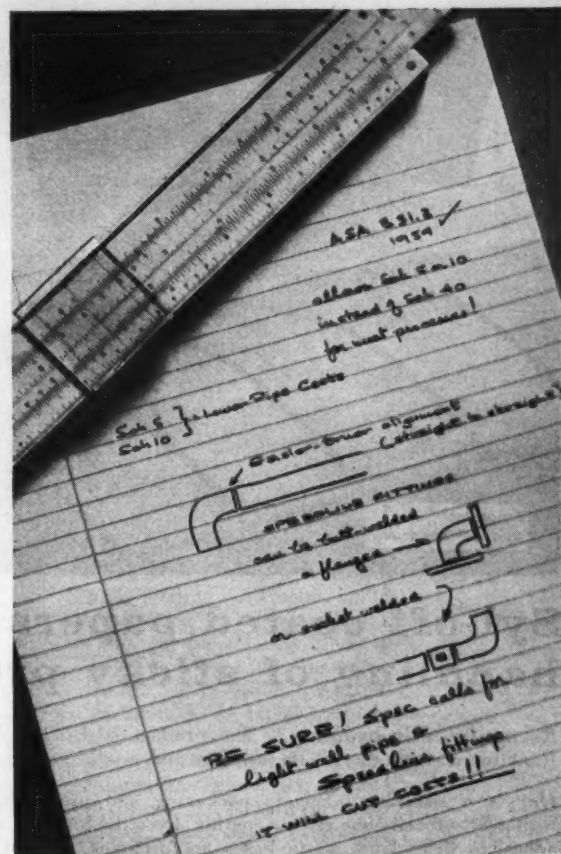 ASA B31.3
1959
allows Sch 5 or 10
instead of Sch 40
for most processes!
Sch 5
Sch 10 } = Lower Pipe Costs
Easier-truer alignment
(straight is straight)
SPEEDLINE FITTINGS
can be butt-welded
or flanged
or socket welded
BE SURE! Spec calls for
light wall pipe &
Speedline fittings
IT WILL CUT COSTS!!